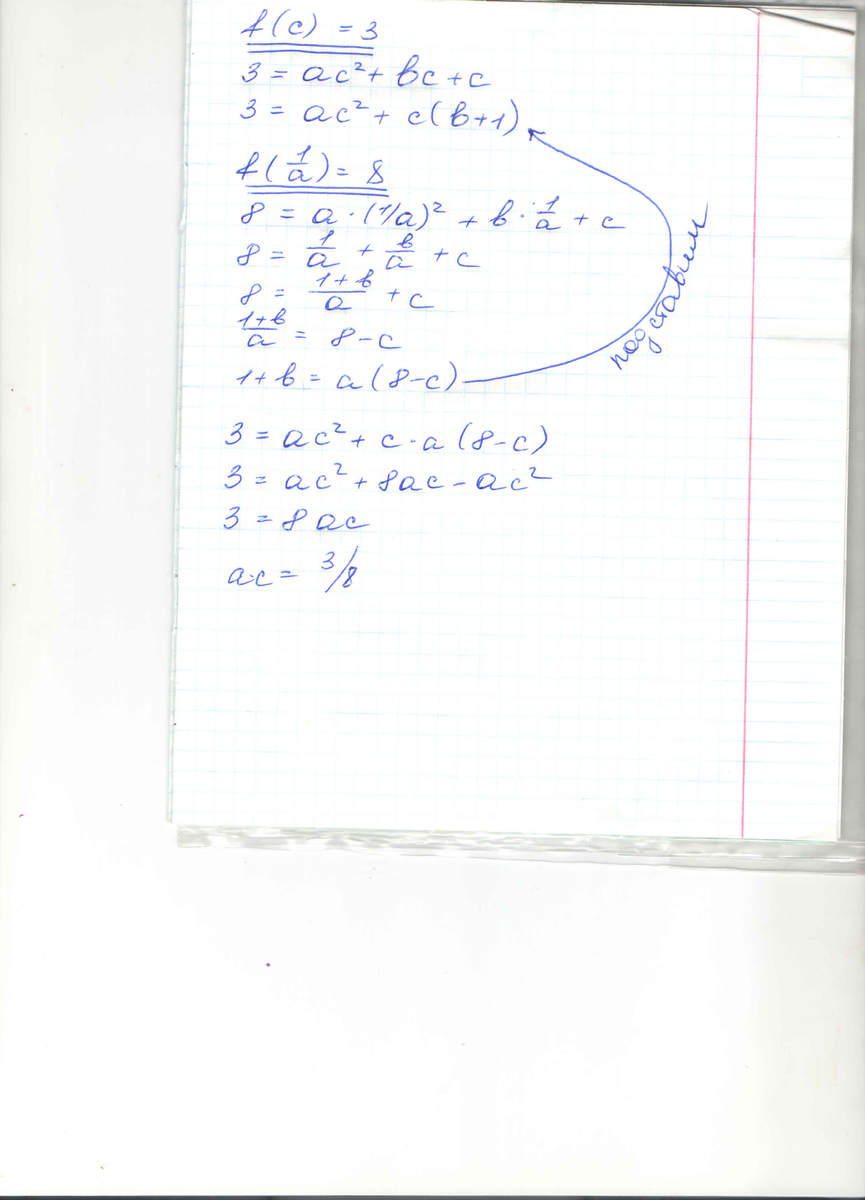 f(c) = 3
3 = ac² + вc + c
3 = ac² + c(в+1)
f(1/a) = 8
8 = a·(1/a)² + в·1/a + c
8 = 1/a + в/a + c
8 = (1+в)/a + c
(1+в)/a = 8-c
1+в = a(8-c)
подставим
3 = ac² + c·a(8-c)
3 = ac² + 8ac - ac²
3 = 8ac
a·c = 3/8